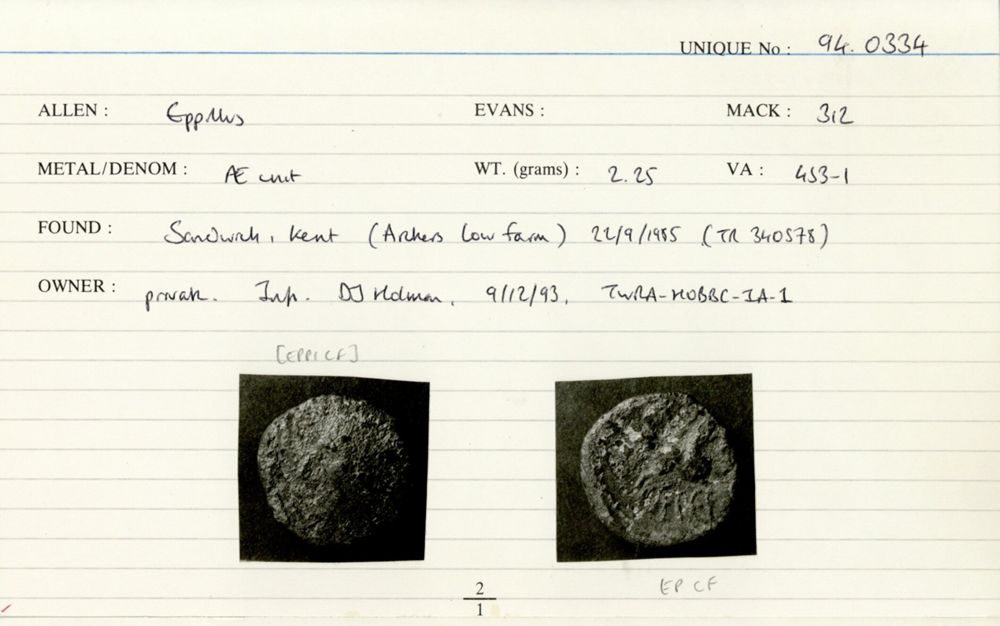 UNIQUE No : 94. 0334
ALLEN : Eppillus EVANS : MACK : 312
METAL/DENOM : Æ unit WT. (grams) : 2.25 VA : 453-1
FOUND : Sandwich, Kent (Archers Low farm) 22/9/1985 (TR 340578)
OWNER : private. Inf. DJ Holman, 9/12/93, TWRA-HOBBC-IA-1
[EPPI CF]
EP CF
2
1